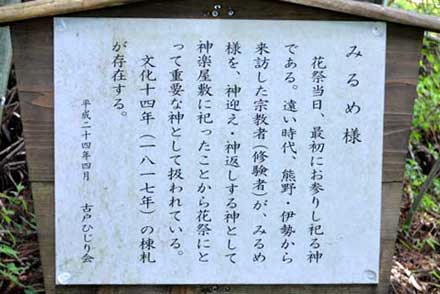 みるめ様
花祭当日、最初にお参りし祀る神
である。遠い時代、熊野・伊勢から
来訪した宗教者(修験者)が、みるめ
様を、神迎え・神返しする神として
神楽屋敷に祀ったことから花祭にと
って重要な神として扱われている。
文化十四年(一八一七年)の棟札
が存在する。
平成二十四年四月 古戸ひじり会